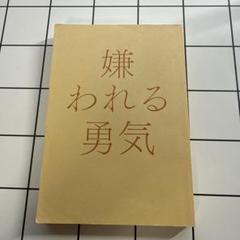 嫌
われる
勇気